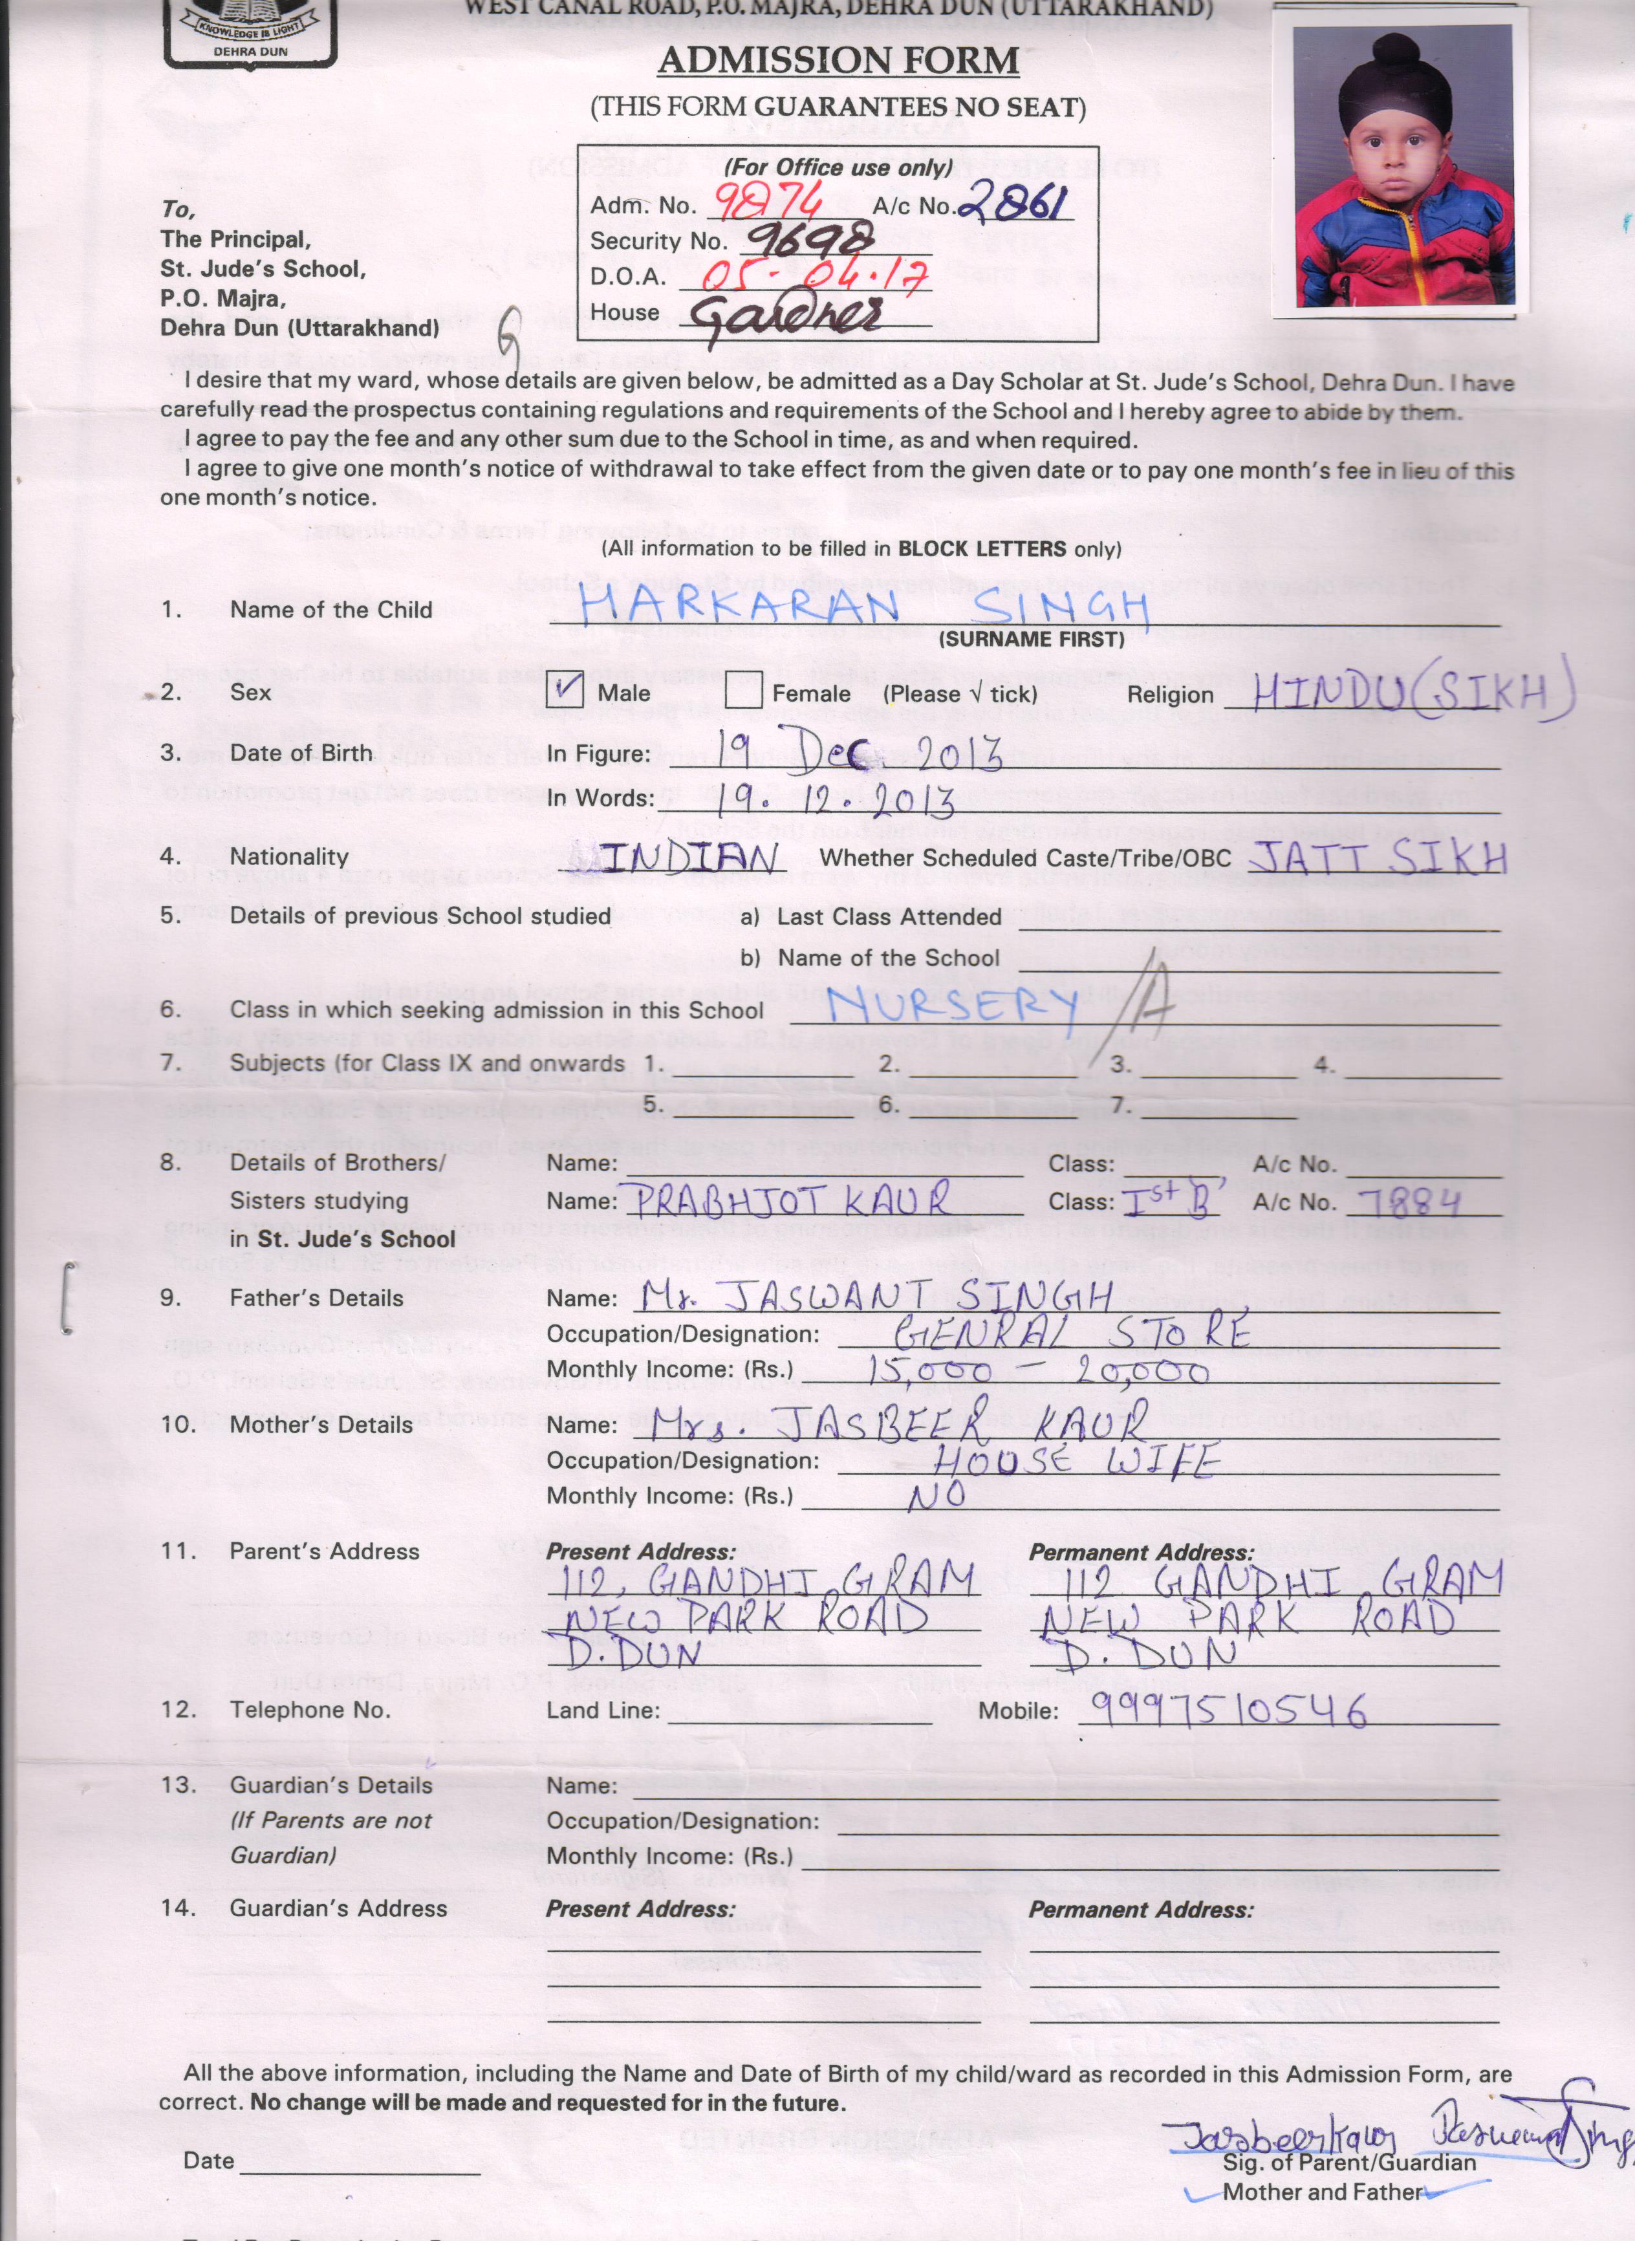 WEST CANAL ROAD, P.O. MAJRA, DEHRA DUN (UTTARAKHAND)
KNOWLEDGE IS LIGHT
DEHRA DUN
ADMISSION FORM
(THIS FORM GUARANTEES NO SEAT)
(For Office use only)
Adm. No. 9874 A/c No. 2861
Security No. 9698
D.O.A. 05-04-17
House Gardner
To,
The Principal,
St. Jude's School,
P.O. Majra,
Dehra Dun (Uttarakhand)
G
I desire that my ward, whose details are given below, be admitted as a Day Scholar at St. Jude's School, Dehra Dun. I have
carefully read the prospectus containing regulations and requirements of the School and I hereby agree to abide by them.
I agree to pay the fee and any other sum due to the School in time, as and when required.
I agree to give one month's notice of withdrawal to take effect from the given date or to pay one month's fee in lieu of this
one month's notice.
(All information to be filled in BLOCK LETTERS only)
1. Name of the Child HARKARAN SINGH
(SURNAME FIRST)
2. Sex ✓ Male Female (Please √ tick) Religion HINDU (SIKH)
3. Date of Birth In Figure: 19 Dec. 2013
In Words: 19. 12. 2013
4. Nationality INDIAN Whether Scheduled Caste/Tribe/OBC JATT SIKH
5. Details of previous School studied a) Last Class Attended
b) Name of the School
6. Class in which seeking admission in this School NURSERY /A
7. Subjects (for Class IX and onwards 1. 2. 3. 4.
5. 6. 7.
8. Details of Brothers/ Name: Class: A/c No.
Sisters studying Name: PRABHJOT KAUR Class: Ist 'B' A/c No. 7884
in St. Jude's School
9. Father's Details Name: Mr. JASWANT SINGH
Occupation/Designation: GENRAL STORE
Monthly Income: (Rs.) 15,000 - 20,000
10. Mother's Details Name: Mrs. JASBEER KAUR
Occupation/Designation: HOUSE WIFE
Monthly Income: (Rs.) NO
11. Parent's Address Present Address: Permanent Address:
112, GANDHI GRAM 112 GANDHI GRAM
NEW PARK ROAD NEW PARK ROAD
D. DUN D. DUN
12. Telephone No. Land Line: Mobile: 9997510546
13. Guardian's Details Name:
(If Parents are not Occupation/Designation:
Guardian) Monthly Income: (Rs.)
14. Guardian's Address Present Address: Permanent Address:
All the above information, including the Name and Date of Birth of my child/ward as recorded in this Admission Form, are
correct. No change will be made and requested for in the future.
Jasbeer kaur Jaswant Singh
Date Sig. of Parent/Guardian
Mother and Father